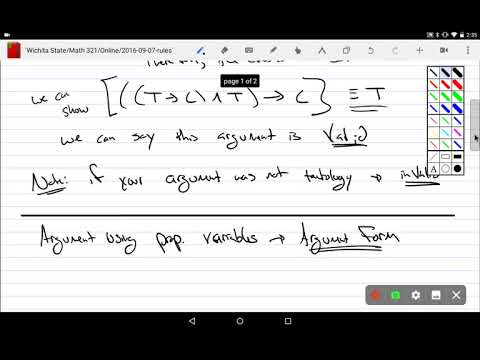 2:35
Wichita State/Math 321/Online/2016-09-07-rules
page 1 of 2
we can show [((T→C)∧T)→C] ≡ T
we can say this argument is Valid
Note: if your argument was not tautology → invalid
Argument using prop. variables → Argument Form
A